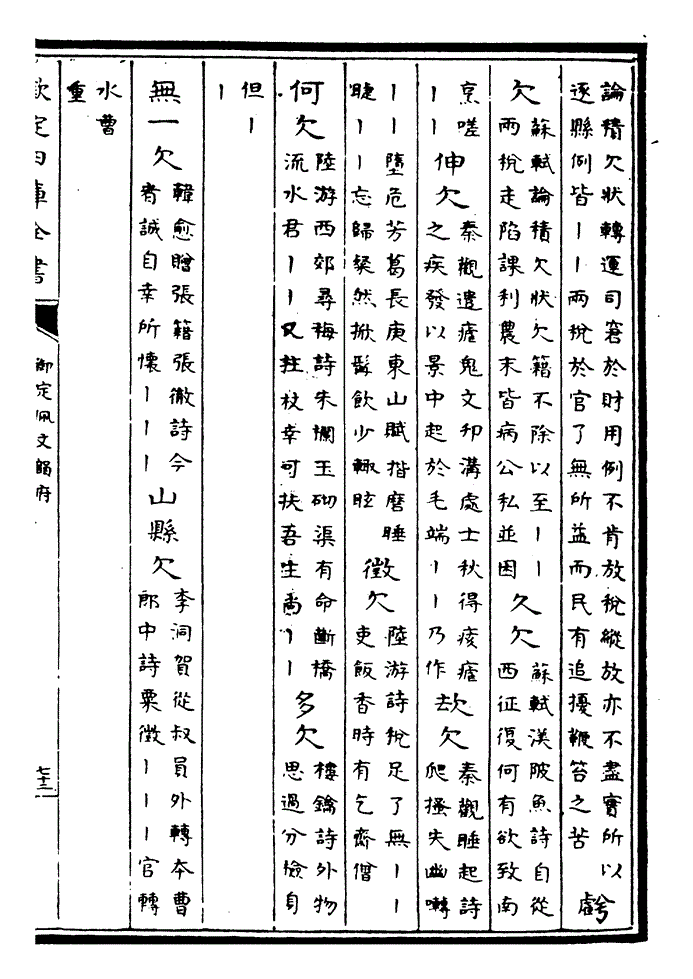 論積欠狀轉運司窘於財用例不肯放稅縱放亦不盡實所以
逐縣例皆丨丨兩稅於官了無所益而民有追擾鞭笞之苦
虧
欠
蘇軾論積欠狀欠籍不除以至丨丨
兩稅走陷課利農末皆病公私並困
久欠
蘇軾渼陂魚詩自從
西征復何有欲致南
烹嗟
丨丨
伸欠
秦觀遣瘧鬼文邗溝處士秋得痎瘧
之疾發以景中起於毛端丨丨乃作
欬欠
秦觀睡起詩
爬搔失幽囀
丨丨墮危芳葛長庚東山賦揩磨睡
睫丨丨忘歸粲然掀髯飲少輒眩
徵欠
陸游詩稅足了無丨丨
吏飯香時有乞齋僧
何欠
陸游西郊尋梅詩朱欄玉砌渠有命斷橋
流水君丨丨又拄杖幸可扶吾生尚丨丨
多欠
樓鑰詩外物
思過分檢身
但丨
丨
無一欠
韓愈贈張籍張徹詩今
者誠自幸所懷丨丨丨
山縣欠
李洞賀從叔員外轉本曹
郎中詩粟徵丨丨丨官轉
水曹
重
欽定四庫全書
御定佩文韻府
七十三